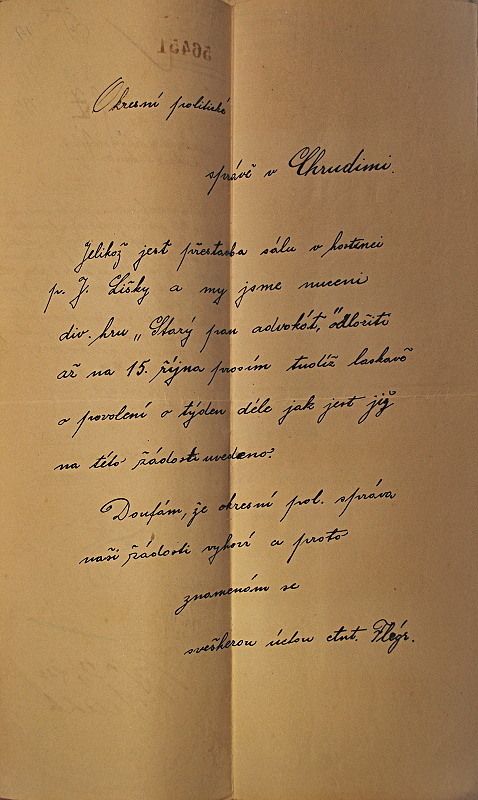 56451
Okresní politické
správě v Chrudimi.
Jelikož jest přestavba sálu v hostinci
p. J. Lišky a my jsme nuceni
div. hru „Starý pan advokát," odložiti
až na 15. října prosím tudíž laskavě
o povolení o týden déle jak jest již
na této žádosti uvedeno.
Doufám, že okresní pol. správa
naši žádosti vyhoví a proto
znamenám se
sveškerou úctou Flégr.